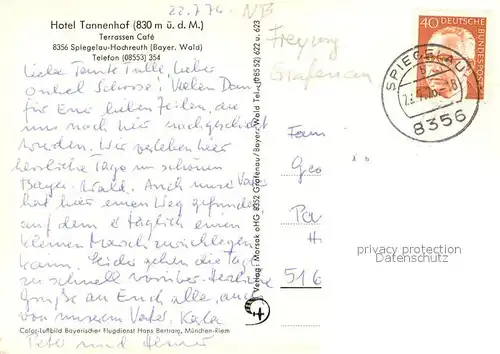 22.7.76
NB
Hotel Tannenhof (830 m ü. d. M.)
Terrassen Café
8356 Spiegelau-Hochreuth (Bayer. Wald)
Telefon (08553) 354
Freyung
Grafenau
40 DEUTSCHE BUNDESPOST
SPIEGELAU
8356
Liebe Tante Tulle, lieber
Onkel Schorse! Vielen Dank
für Eure lieben Zeilen, die
uns noch hier nachgeschickt
wurden. Wir verleben hier
herrliche Tage im schönen
Bayr. Wald. Auch unser Vater
hat hier einen Weg gefunden
auf dem er täglich einen
kleinen Marsch zurücklegen
kann. Leider gehen die Tage
zu schnell vorüber. Herzliche
Grüße an Euch alle, auch
von unserem Vater.
Peter und
Verlag: Morsak oHG 8352 Grafenau/Bayer. Wald Tel. (085 52) 622 u. 623
Fam
Geo
Pa
H
516
privacy protection
Datenschutz
Color-Luftbild Bayerischer Flugdienst Hans Bertram, München-Riem